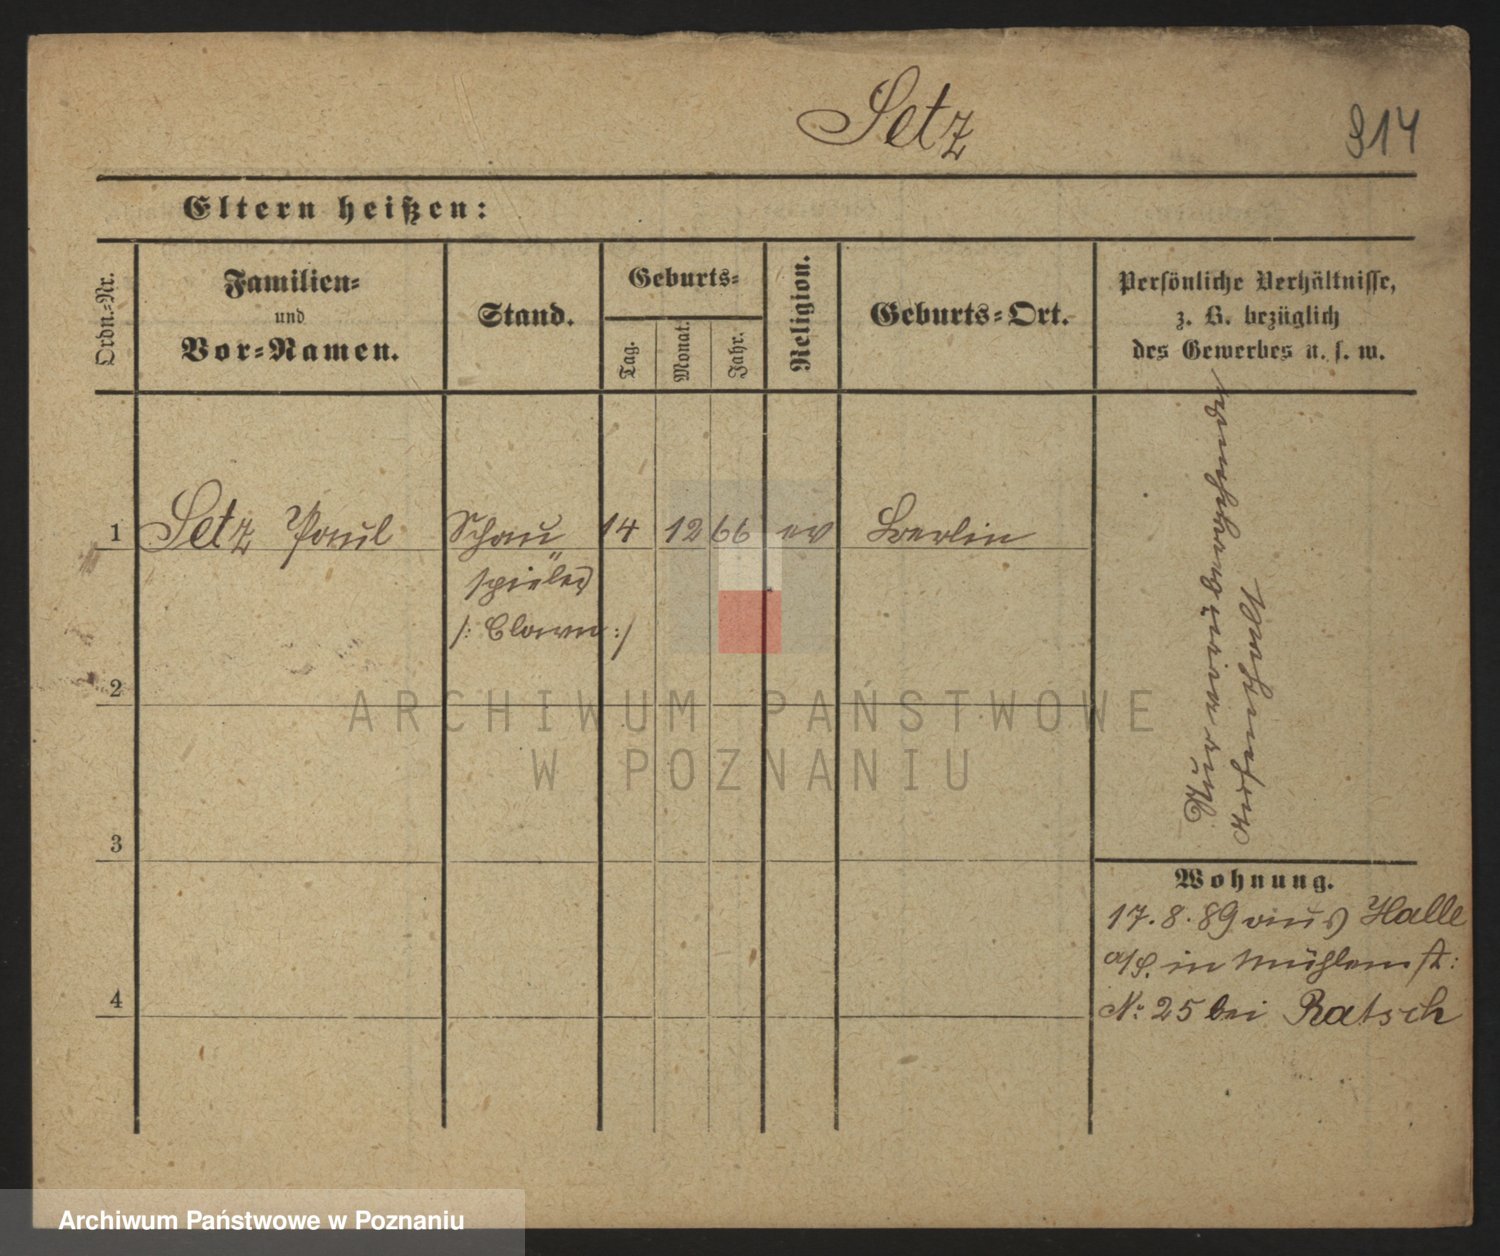 Setz
914
Eltern heißen:
Ordn.-Nr.
Familien-
und
Vor-Namen.
Stand.
Geburts-
Tag.
Monat.
Jahr.
Religion.
Geburts-Ort.
Persönliche Verhältnisse,
z. B. bezüglich
des Gewerbes u. s. w.
1 Setz Paul Schau 14 12 66 ev Berlin
spieler
/: Clown :/
2
3
4
Wohnung.
17.8.89 aus Halle
a/S. in Mühlenst:
No: 25 bei Ratsch
ARCHIWUM PAŃSTWOWE
W POZNANIU
Archiwum Państwowe w Poznaniu